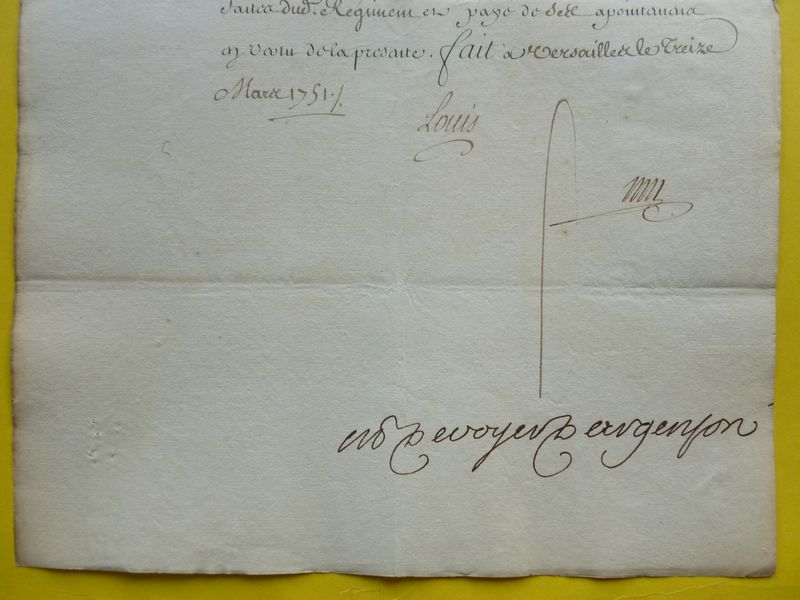 dud. Regiment et payé de ses apointemens
en vertu de la presente. fait a Versailles le Treize
Mars 1751./.
Louis
M de voyer Dargenson